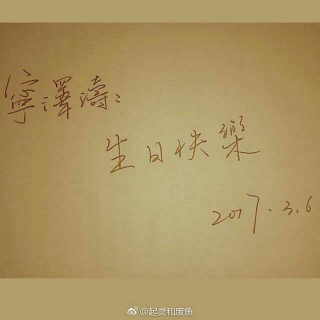 寧澤濤：
生日快樂
2017.3.6
@起灵和废鱼